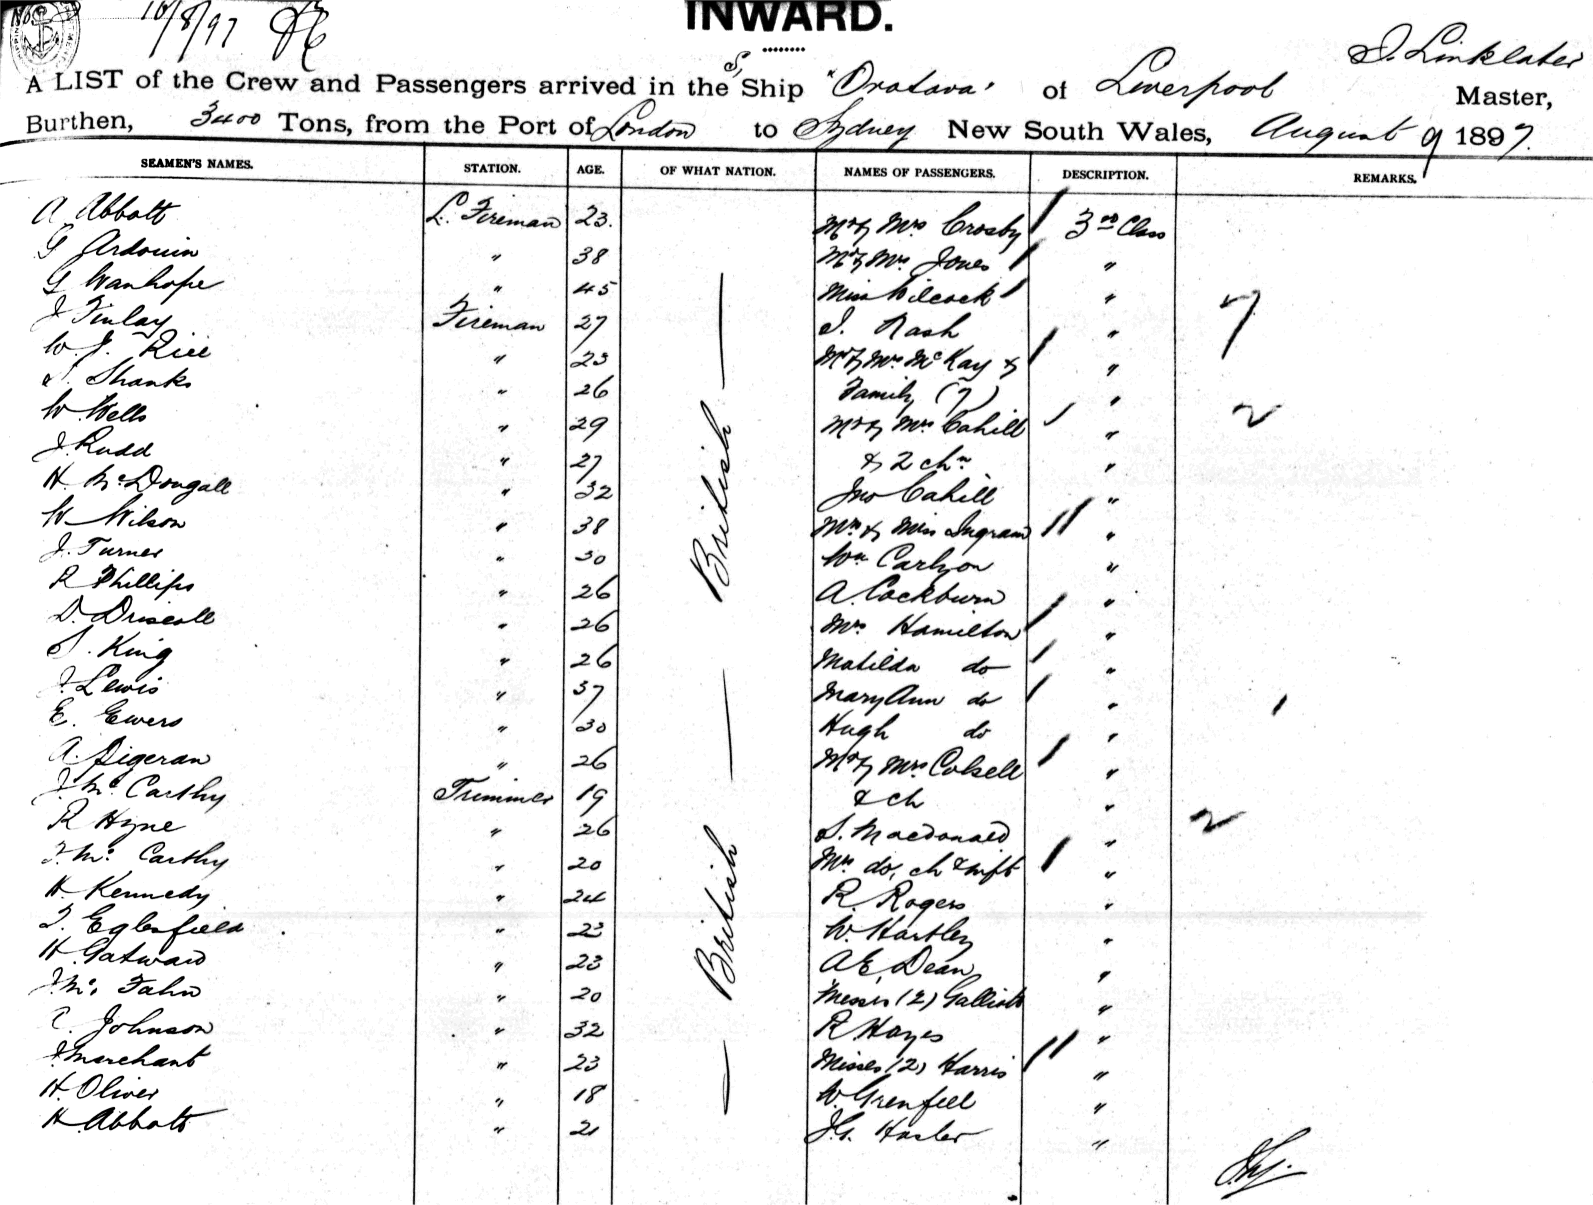 10/8/97
INWARD.
J. Linklater
A LIST of the Crew and Passengers arrived in the S, Ship "Oratava" of Liverpool Master,
Burthen, 3400 Tons, from the Port of London to Sydney New South Wales, August 9 1897.
SEAMEN'S NAMES. STATION. AGE. OF WHAT NATION. NAMES OF PASSENGERS. DESCRIPTION. REMARKS.
A Abbott L. Fireman 23. Mr & Mrs Crosby 3rd Class
G Ardouin " 38 Mr & Mrs Jones "
G Wanhope " 45 Miss Wilcock " 7
J Finlay Fireman 27 J. Nash "
W. J. Rice " 23 Mr & Mrs McKay & "
J. Shanks " 26 Family (7) "
W. Wells " 29 Mr & Mrs Cahill " 2
J. Rudd " 27 & 2 chn "
H. McDougall " 32 Jno Cahill "
W Wilson " 38 British Mrs & Miss Ingram "
J. Turner " 30 Wm Carlyon "
R Phillips " 26 A. Cockburn "
D. Driscoll " 26 Mrs Hamilton "
S. King " 26 Matilda do "
J. Lewis " 37 Mary Ann do "
E. Ewers " 30 Hugh do "
A. Digeran " 26 Mr & Mrs Colsell "
J. McCarthy Trimmer 19 & ch "
R Hyne " 26 S. Macdonald " 2
J. Mc Carthy " 20 Mrs do, ch & inft "
H. Kennedy " 24 R. Rogers "
J. Eglesfield " 23 W. Hartley "
H. Gatward " 23 British A E, Dean "
J. Mc. Fahn " 20 Messrs (2) Galliott "
C. Johnson " 32 R Hayes "
J Marchant " 23 Misses (2) Harris "
H. Oliver " 18 W. Grenfell "
H. Abbott " 21 J. G. Hosler "